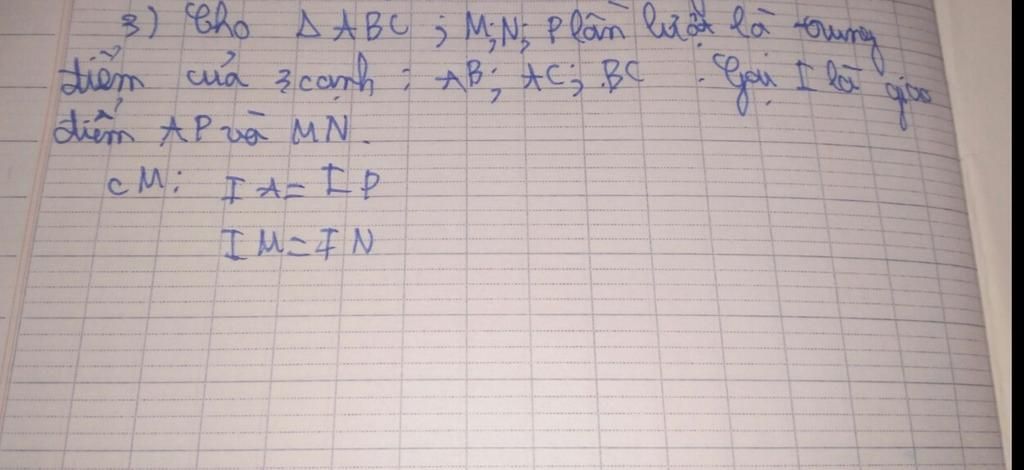 3) Cho Δ ABC ; M; N; P lần lượt là trung
điểm của 3 cạnh : AB; AC; BC. Gọi I là giao
điểm AP và MN.
CM: IA = IP
IM = IN